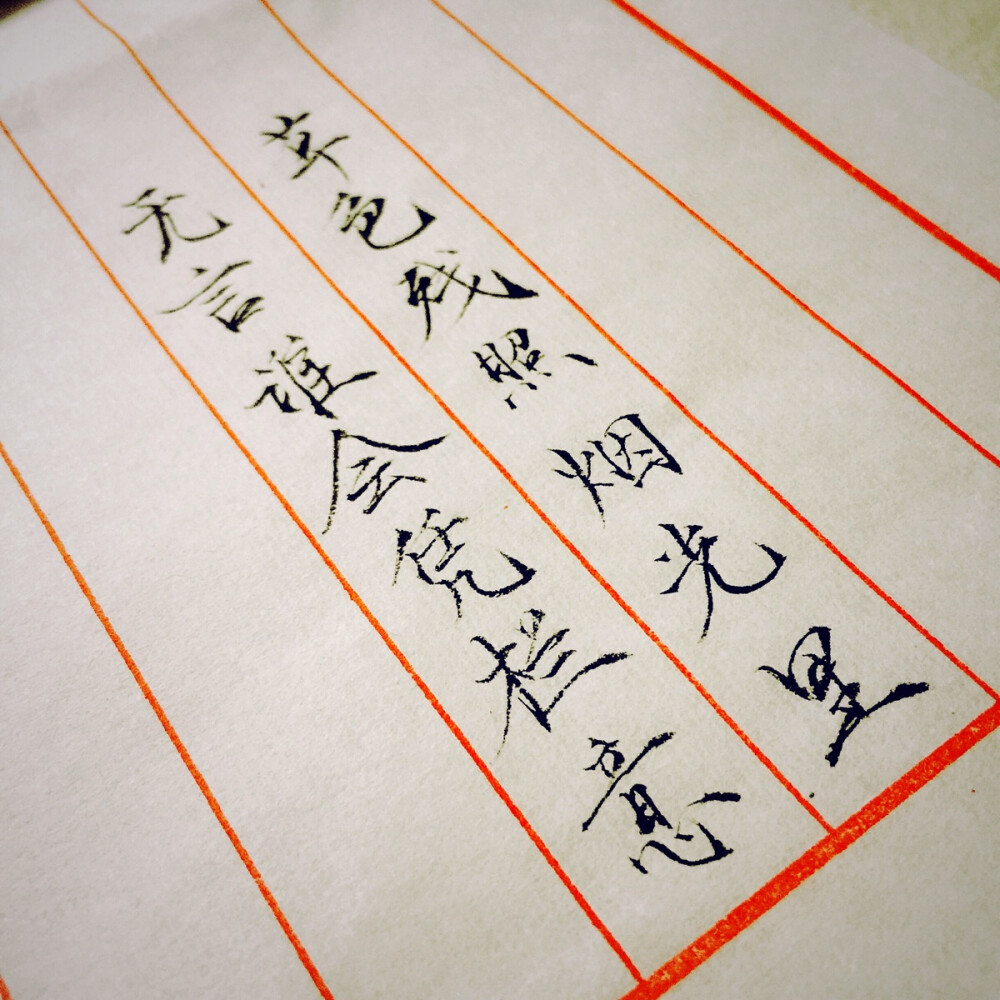 草色残照烟光里
无言谁会凭栏意